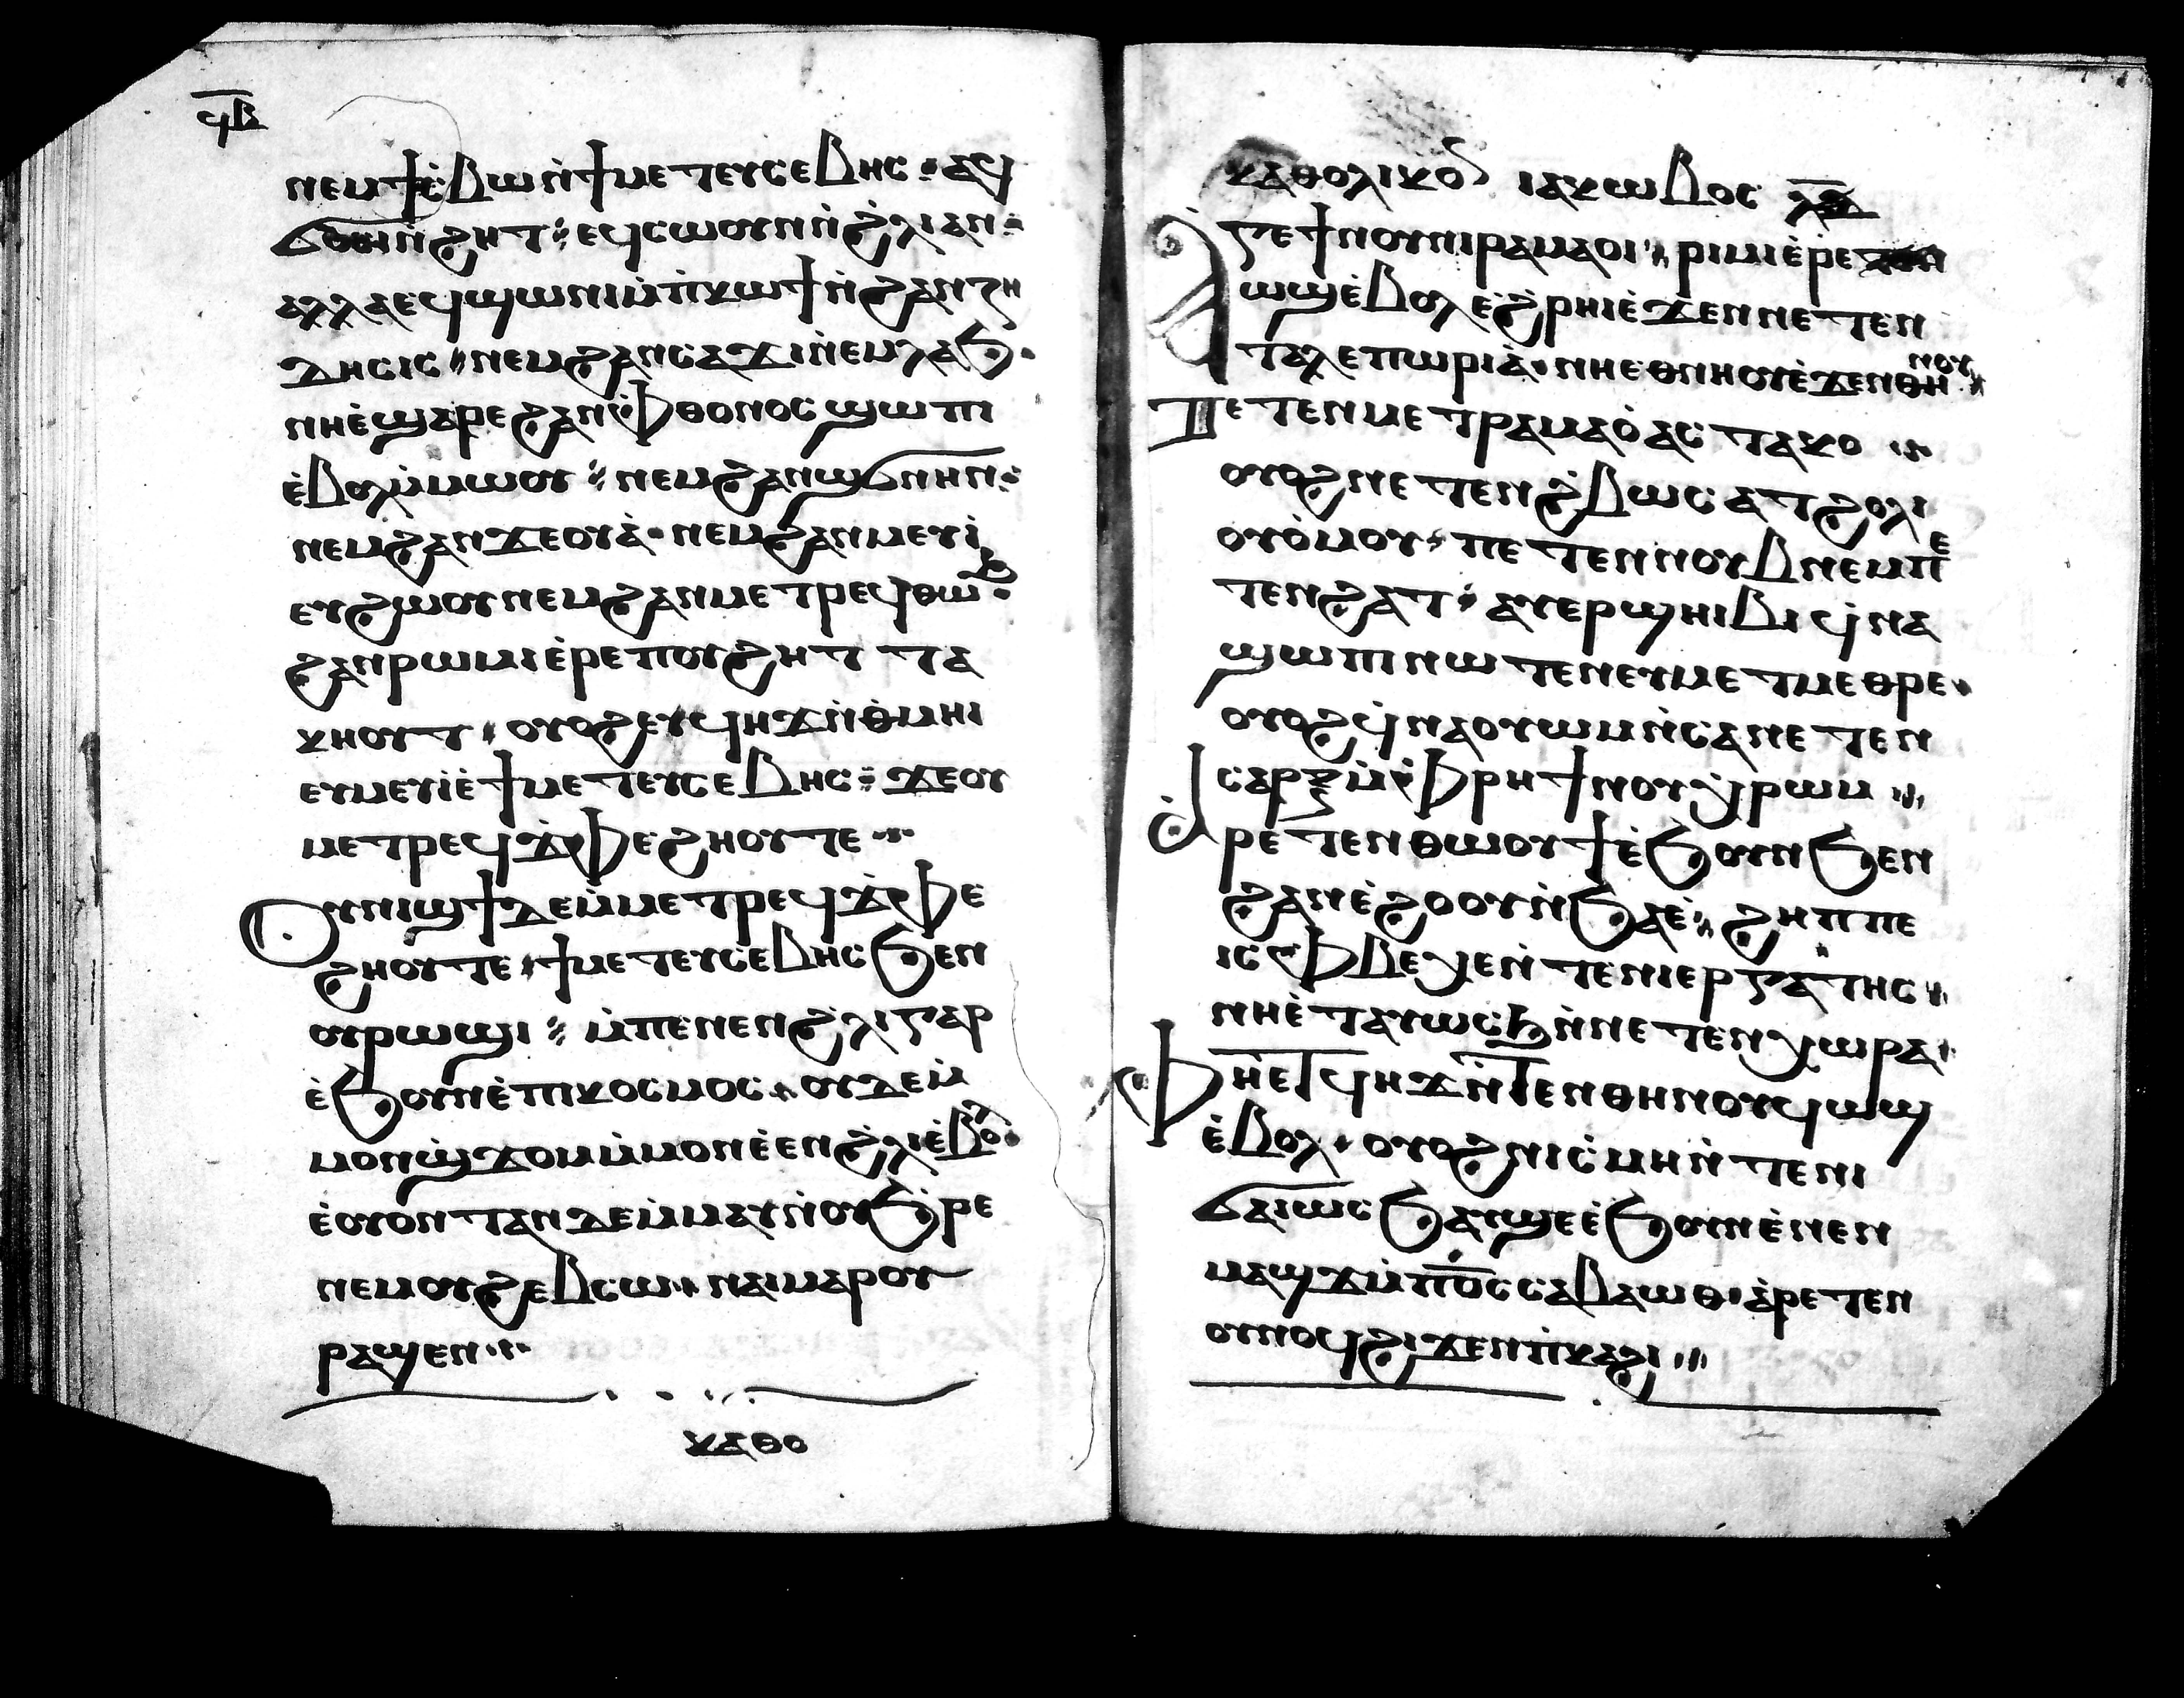 ϥⲃ
ⲛⲉⲙϯⲥ̀ⲃⲱⲛ̀ϯⲙⲉⲧⲉⲩⲥⲉⲃⲏⲥ · ⲁϥ
ϭⲟⲥⲓⲛ̀ϩⲏⲧ ⁖ ⲉϥⲥⲱⲟⲩⲛⲛ̀ϩ̀ⲗⲓⲁⲛ ⁖
ⲁⲗⲗⲁⲉϥϣⲱⲛⲓⲙ̀ⲡ̀ⲕⲱϯⲛ̀ϩⲁⲛⲍⲏ
ⲇⲏⲥⲓⲥ ⁖ ⲛⲉⲙϩⲁⲛⲥⲁϫⲓⲛ̀ⲉⲙⲗⲁϧ ·
ⲛⲏⲉ̀ϣⲁⲣⲉϩⲁⲛⲫ̀ⲑⲟⲛⲟⲥϣⲱⲡⲓ
ⲉ̀ⲃⲟⲗⲙ̀ⲙⲱⲟⲩ ⁖ ⲛⲉⲙϩⲁⲛϣϭⲛⲏⲛ ⁖
ⲛⲉⲙϩⲁⲛϫⲉⲟⲩⲁ̀ · ⲛⲉⲙϩⲁⲛⲙⲉⲩⲓ̀
ⲉⲩϩⲱⲟⲩⲛⲉⲙϩⲁⲛⲙⲉⲧⲣⲉϥⲑⲱϧ ·
ϩⲁⲛⲣⲱⲙⲓⲉ̀ⲣⲉⲡⲟⲩϩⲏⲧ ⲧⲁ
ⲕⲏⲟⲩⲧ · ⲟⲩⲟϩⲉⲩϥⲏϫⲛ̀ⲑ̀ⲙⲏⲓ
ⲉⲩⲙⲉⲩⲓ̀ⲉ̀ϯⲙⲉⲧⲉⲩⲥⲉⲃⲏⲥ ⁖ ϫⲉⲟⲩ
ⲙⲉⲧⲣⲉϥϫ̀ⲫⲉϩⲏⲟⲩⲧⲉ ·⁖·
Ⲟⲩⲛⲓϣϯⲇⲉⲙ̀ⲙⲉⲧⲣⲉϥϫ̀ⲫⲉ
ϩⲏⲟⲩⲧⲉ · ϯⲙⲉⲧⲉⲩⲥⲉⲃⲏⲥϧⲉⲛ
ⲟⲩⲣⲱϣⲓ ⁖ ⲙ̀ⲡⲉⲛⲉⲛϩ̀ⲗⲓⲅⲁⲣ
ⲉ̀ϧⲟⲩⲛⲉ̀ⲡⲓⲕⲟⲥⲙⲟⲥ · ⲟⲩⲇⲉⲙ̀
ⲙⲟⲛϣ̀ϫⲟⲙⲙ̀ⲙⲟⲛⲉ̀ⲉⲛϩ̀ⲗⲓⲉ̀ⲃⲟⲗ ·
ⲉ̀ⲟⲩⲟⲛⲧⲁⲛⲇⲉⲙ̀ⲙⲁⲩⲛ̀ⲟⲩϧ̀ⲣⲉ
ⲛⲉⲙⲟⲩϩⲉⲃⲥⲱ · ⲛⲁⲓⲙⲁⲣⲟⲩ
ⲣⲁϣⲉⲛ ·⁖·
ⲕⲁⲑⲟ
ⲕⲁⲑⲟⲗⲓⲕⲟⲛ ⲓⲁⲕⲱⲃⲟⲥ
Ⲁⲅⲉϯⲛⲟⲩⲛⲓⲣⲁⲙⲁⲟⲓ · ⲣⲓⲙⲓⲉ̀ⲣⲉⲧⲉⲛ
ⲱϣⲉ̀ⲃⲟⲗⲉ̀ϩ̀ⲣⲏⲓⲉ̀ϫⲉⲛⲛⲉⲧⲉⲛ
ⲧⲁⲗⲉⲡⲱⲣⲓⲁ̀ · ⲛⲏⲉⲑⲛⲏⲟⲩⲉ̀ϫⲉⲛⲑⲏⲛⲟⲩ
Ⲡⲉⲧⲉⲛⲙⲉⲧⲣⲁⲙⲁⲟ̀ⲁⲥⲧⲁⲕⲟ ·⁖
ⲟⲩⲟϩⲛⲉⲧⲉⲛϩ̀ⲃⲱⲥⲁⲧϩⲟⲗⲓ
ⲟⲩⲟ̀ⲙⲟⲩ · ⲡⲉⲧⲉⲛⲛⲟⲩⲃⲛⲉⲙⲡⲉ
ⲧⲉⲛϩⲁⲧ ⁖ ⲁⲩⲉⲣϣⲏⲓⲃⲓϥ̀ⲛⲁ
ϣⲱⲡⲓⲛⲱⲧⲉⲛⲉⲩⲙⲉⲧⲙⲉⲑⲣⲉ ·
ⲟⲩⲟϩϥ̀ⲛⲁⲟⲩⲱⲙⲛ̀ⲥⲁⲛⲉⲧⲉⲛ
ⲥⲁⲣⲝⲙ̀ⲫ̀ⲣⲏϯⲛⲟⲩⲭ̀ⲣⲱⲙ ·⁖
Ⲁⲣⲉⲧⲉⲛⲑⲱⲟⲩϯⲉ̀ϧⲟⲩⲛϧⲉⲛ
ϩⲁⲛⲉ̀ϩⲟⲟⲩⲛ̀ϧⲁⲉ̀ · ϩⲏⲡⲡⲉ
ⲓⲥⲫ̀ⲃⲉⲭⲉⲛ̀ⲧⲉⲛⲓⲉⲣⲅⲁⲧⲏⲥ ·
ⲛⲏⲉ̀ⲧⲁⲩⲱⲥϧⲛ̀ⲛⲉⲧⲉⲛⲭⲱⲣⲁ ·
Ⲫⲏⲉⲧϥⲏϫⲛ̀ⲧⲉⲛⲑⲏⲛⲟⲩϥⲱϣ
ⲉ̀ⲃⲟⲗ · ⲟⲩⲟϩⲛⲓⲥ̀ⲙⲏⲛ̀ⲧⲉⲛⲓ
ϭⲁⲓⲱⲥϧⲁⲩϣⲉⲉ̀ϧⲟⲩⲛⲉ̀ⲛⲉⲛ
ⲙⲁϣϫⲙ̀ⲡⲟ̅ⲥ̅ⲥⲁⲃⲁⲱⲑ · ⲁ̀ⲣⲉⲧⲉⲛ
ⲟⲩⲛⲟϥϩⲓϫⲉⲛⲡ̀ⲕⲁϩⲓ ·⁖